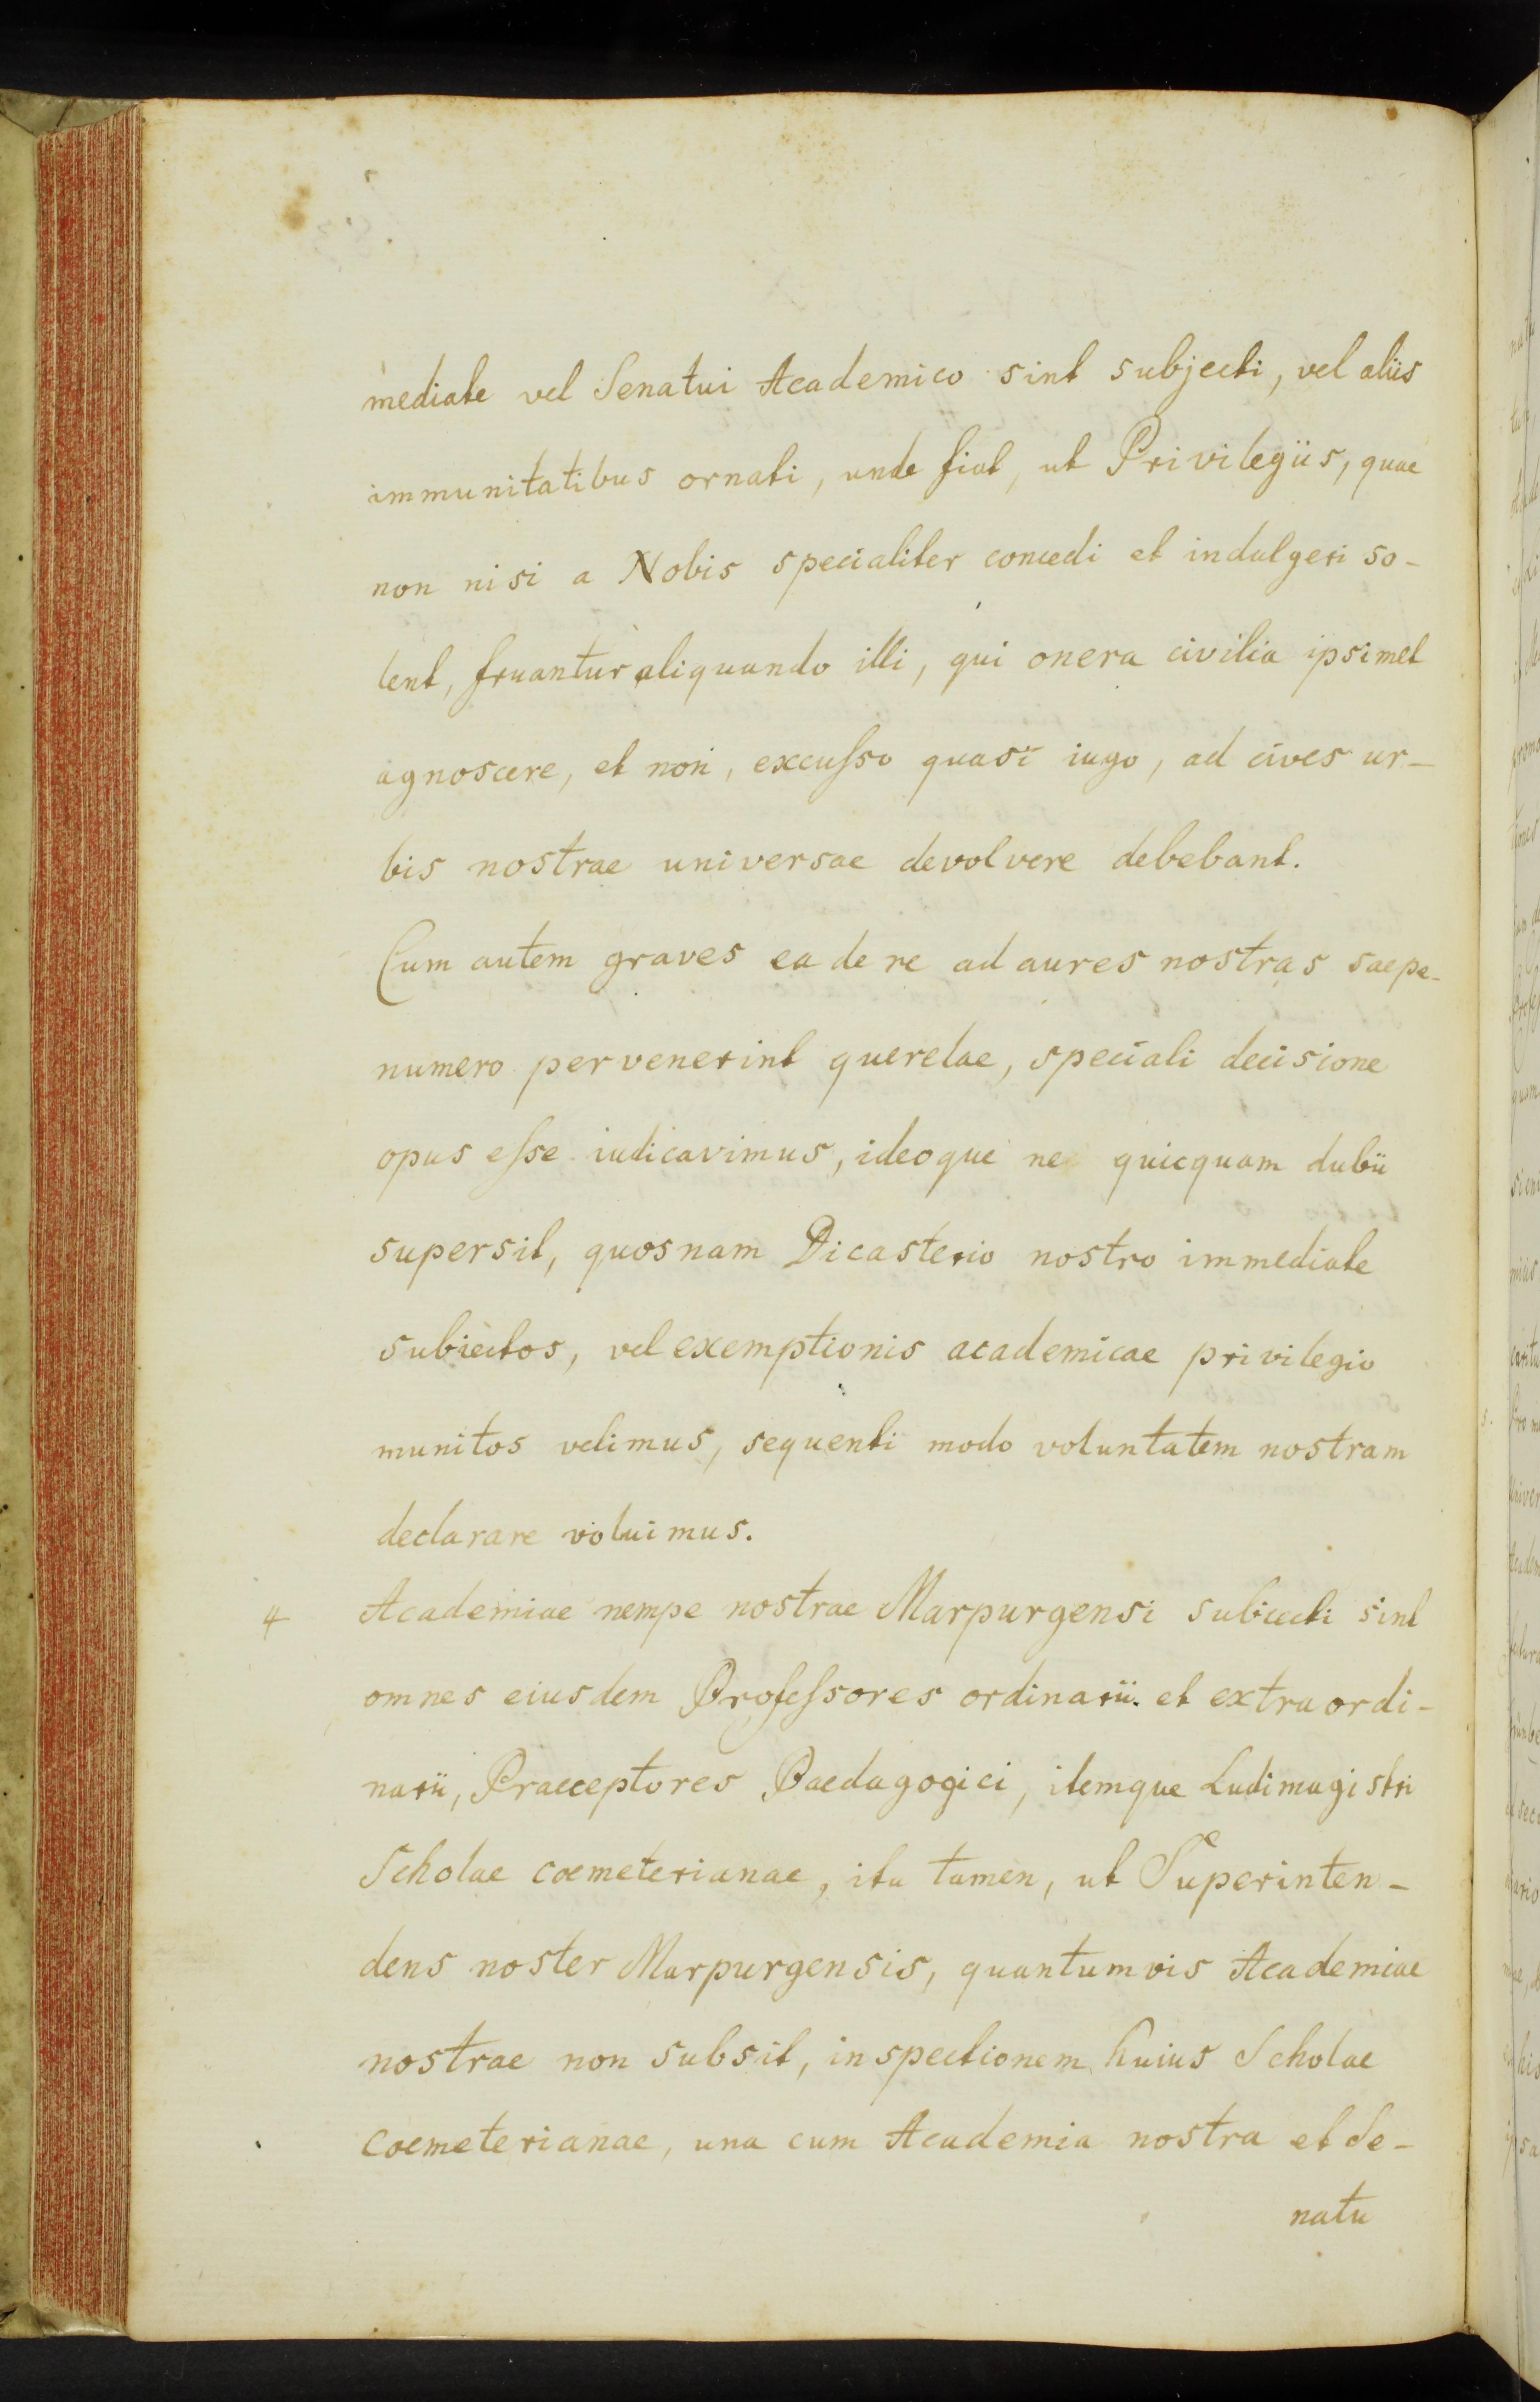 mediate vel Senatui Academico sint subjecti, vel aliis
immunitatibus ornati, unde fiat, ut Privilegiis, quae
non nisi a Nobis specialiter concedi et indulgeri so-
lent, fruantur aliquando illi, qui onera civilia ipsimet
agnoscere, et non, excuſso quasi iugo, ad cives ur-
bis nostrae universae devolvere debebant.
Cum autem graves ea de re ad aures nostras saepe-
numero pervenerint querelae, speciali decisione
opus eſse iudicavimus, ideoque ne quicquam dubii
supersit, quosnam Dicasterio nostro immediate
subiectos, vel exemptionis academicae privilegio
munitos velimus, sequenti modo voluntatem nostram
declarare voluimus.
4 Academiae nempe nostrae Marpurgensi subiecti sint
omnes eiusdem Profeſsores ordinarii et extraordi-
narii, Praeceptores Paedagogici, itemque Ludimagistri
Scholae coemeterianae, ita tamen, ut Superinten-
dens noster Marpurgensis, quantumvis Academiae
nostrae non subsit, inspectionem huius Scholae
coemeterianae, una cum Academia nostra et Se-
natu